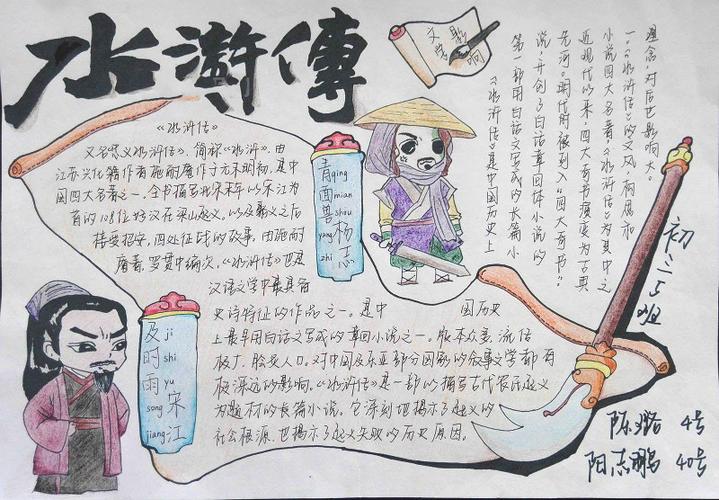 水滸傳
文学影响
《水浒传》
又名忠义水浒传》、简称《水浒》,由
江苏兴化籍作者施耐庵作于元末明初,是中
国四大名著之一。全书描写北宋末年以宋江为
首的108位好汉在梁山起义,以及聚义之后
接受招安,四处征战的故事,由施耐
庵著,罗贯中编次,《水浒传》也是
汉语文学中最具备
史诗特征的作品之一。是中国历史
上最早用白话文写成的章回小说之一。版本众多,流传
极广,脍炙人口,对中国及东亚部分国家的叙事文学都有
极深远的影响。《水浒传》是一部以描写古代农民起义
为题材的长篇小说。它深刻地揭示了起义的
社会根源,也揭示了起义失败的历史原因。
青面兽杨志
qing mian shou yang zhi
及时雨宋江
ji shi yu song jiang
《水浒传》是中国历史上
第一部用白话文写成的长篇小
说,开创了白话章回体小说的
先河。明代时被列入“四大奇书”
近现代以来,四大奇书演变为古典
小说四大名著,《水浒传》为其中之
一。《水浒传》的文风、构局和
理念,对后世影响大。
初二5班
陈璐 4号
阳志鹏 40号